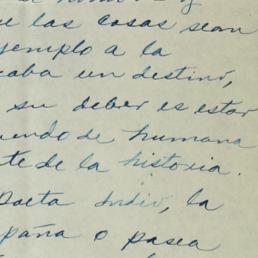 e las cosas sean
ejemplo a la
caba un destino,
su deber es estar
iendo de humana
te de la historia.
poeta Indio, la
paña o pasea